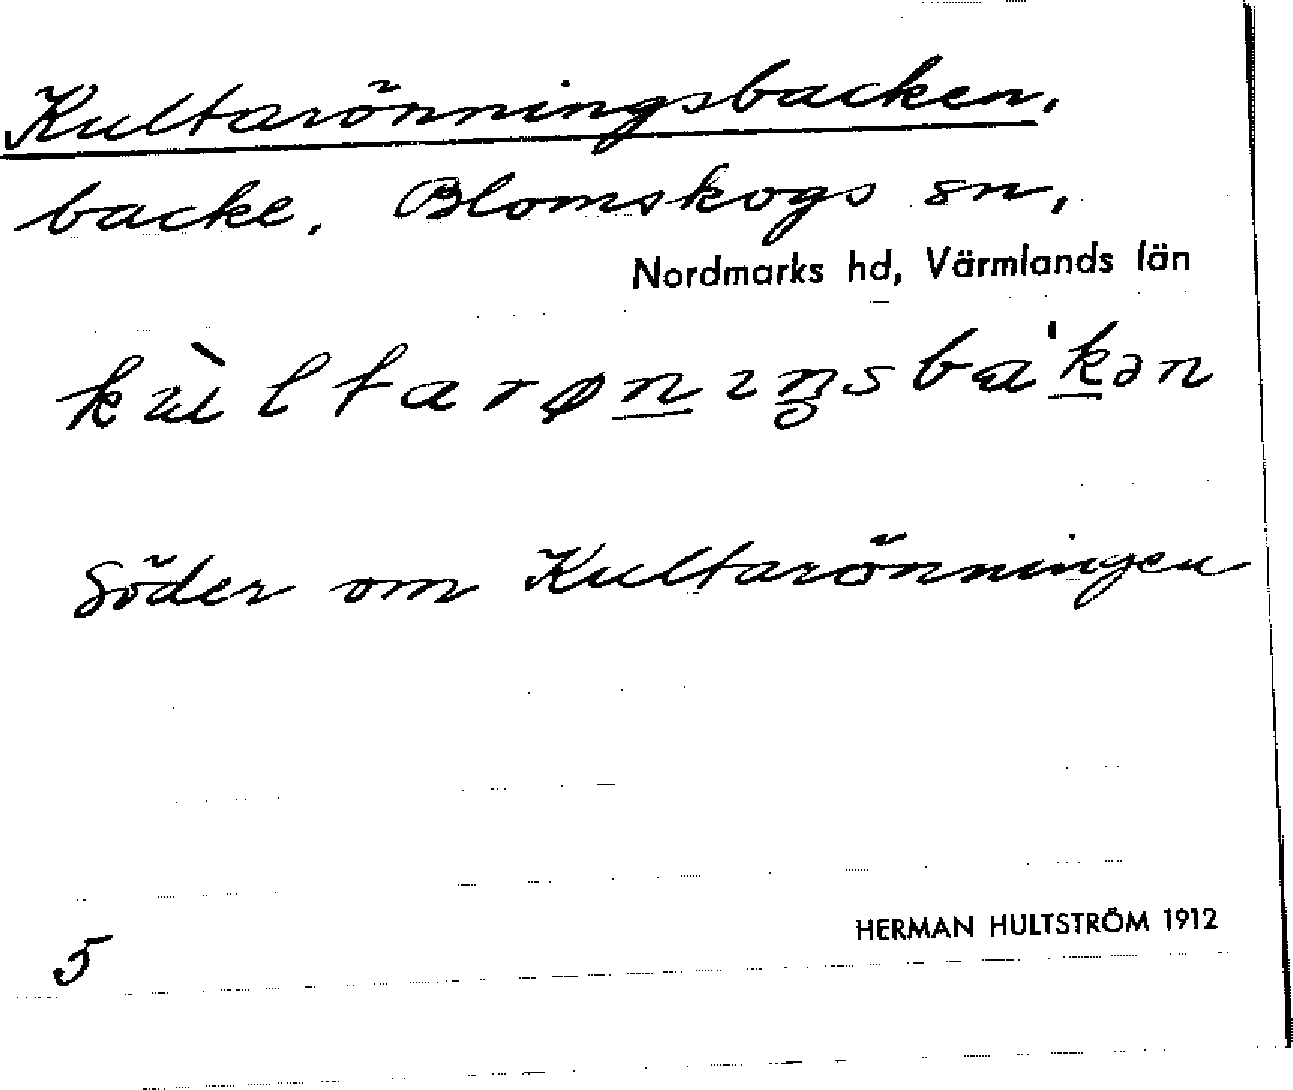 Kultarönningsbacken,
backe, Blomskogs sn,
Nordmarks hd, Värmlands län
Söder om Kultarönningen
5
HERMAN HULTSTRÖM 1912